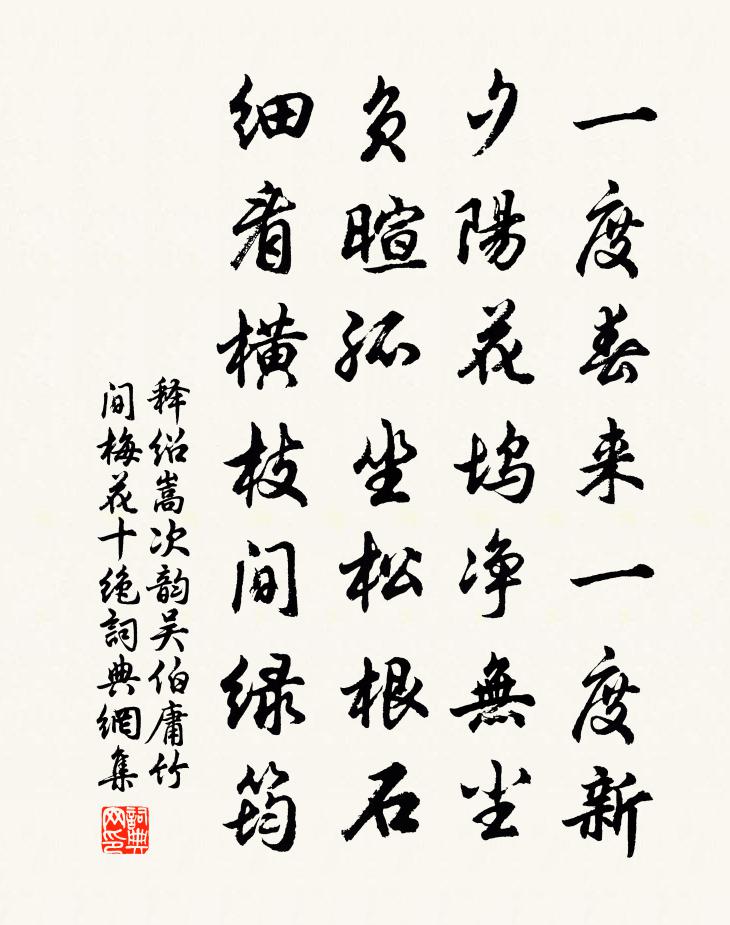 一度春来一度新
夕陽花坞净無尘
负暄孤坐松根石
细看横枝间绿筠
释绍嵩次韵吴伯庸竹
间梅花十绝詞典網集
詞典网印